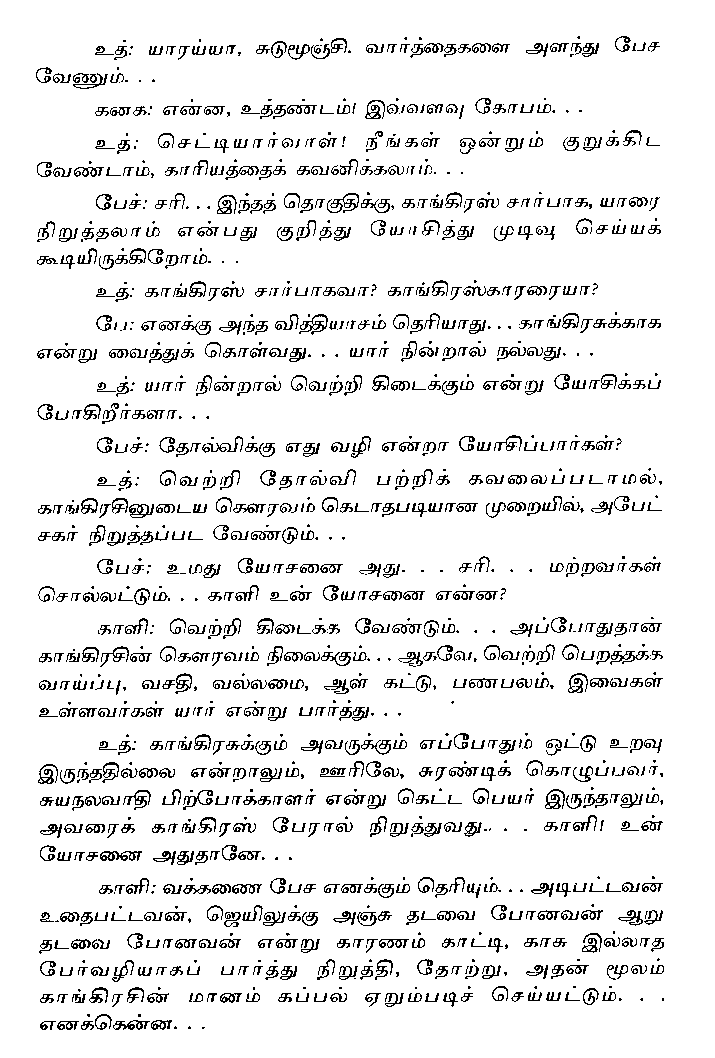 உத்: யாரய்யா, சுடுமூஞ்சி. வார்த்தைகளை அளந்து பேச
வேணும். . .
கனக: என்ன, உத்தண்டம்! இவ்வளவு கோபம். . .
உத்: செட்டியார்வாள்! நீங்கள் ஒன்றும் குறுக்கிட
வேண்டாம், காரியத்தைக் கவனிக்கலாம். . .
பேச்: சரி. . . இந்தத் தொகுதிக்கு, காங்கிரஸ் சார்பாக, யாரை
நிறுத்தலாம் என்பது குறித்து யோசித்து முடிவு செய்யக்
கூடியிருக்கிறோம். . .
உத்: காங்கிரஸ் சார்பாகவா? காங்கிரஸ்காரரையா?
பே: எனக்கு அந்த வித்தியாசம் தெரியாது. . . காங்கிரசுக்காக
என்று வைத்துக் கொள்வது. . . யார் நின்றால் நல்லது. . .
உத்: யார் நின்றால் வெற்றி கிடைக்கும் என்று யோசிக்கப்
போகிறீர்களா. . .
பேச்: தோல்விக்கு எது வழி என்றா யோசிப்பார்கள்?
உத்: வெற்றி தோல்வி பற்றிக் கவலைப்படாமல்,
காங்கிரசினுடைய கௌரவம் கெடாதபடியான முறையில், அபேட்
சகர் நிறுத்தப்பட வேண்டும். . .
பேச்: உமது யோசனை அது. . . சரி. . . மற்றவர்கள்
சொல்லட்டும். . . காளி உன் யோசனை என்ன?
காளி: வெற்றி கிடைக்க வேண்டும். . . அப்போதுதான்
காங்கிரசின் கௌரவம் நிலைக்கும். . . ஆகவே, வெற்றி பெறத்தக்க
வாய்ப்பு, வசதி, வல்லமை, ஆள் கட்டு, பணபலம், இவைகள்
உள்ளவர்கள் யார் என்று பார்த்து. . .
உத்: காங்கிரசுக்கும் அவருக்கும் எப்போதும் ஒட்டு உறவு
இருந்ததில்லை என்றாலும், ஊரிலே, சுரண்டிக் கொழுப்பவர்,
சுயநலவாதி பிற்போக்காளர் என்று கெட்ட பெயர் இருந்தாலும்,
அவரைக் காங்கிரஸ் பேரால் நிறுத்துவது.. . . காளி! உன்
யோசனை அதுதானே. . .
காளி: வக்கணை பேச எனக்கும் தெரியும். . . அடிபட்டவன்
உதைபட்டவன், ஜெயிலுக்கு அஞ்சு தடவை போனவன் ஆறு
தடவை போனவன் என்று காரணம் காட்டி, காசு இல்லாத
பேர்வழியாகப் பார்த்து நிறுத்தி, தோற்று, அதன் மூலம்
காங்கிரசின் மானம் கப்பல் ஏறும்படிச் செய்யட்டும். . .
எனக்கென்ன. . .